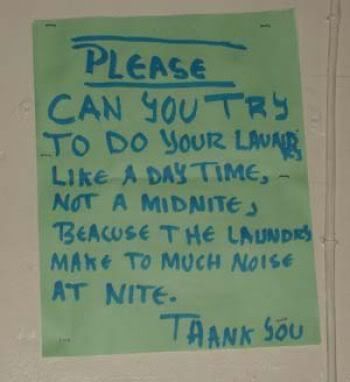 PLEASE
CAN YOU TRY
TO DO YOUR LAUNDRY
LIKE A DAY TIME,
NOT A MIDNITE,
BEACUSE THE LAUNDRY
MAKE TO MUCH NOISE
AT NITE.
THANK YOU